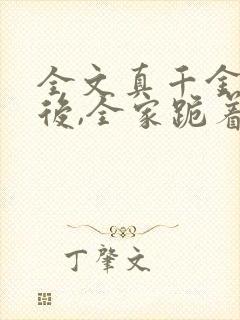 全文真千金
後,全家跪着
丁肇文